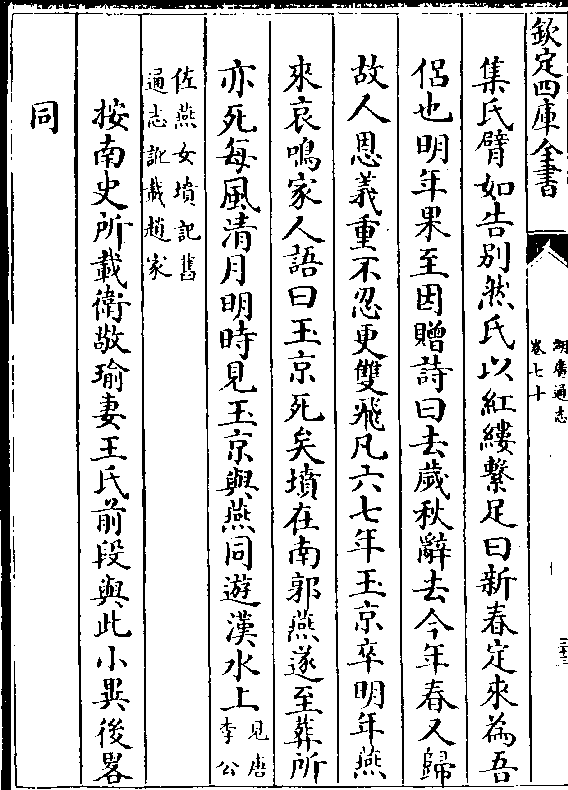 欽定四庫全書
湖廣通志
卷七十
集氏臂如告別然氏以紅縷繫足曰新春定來為吾
侶也明年果至因贈詩曰去歲秋辭去今年春又歸
故人恩義重不忍更雙飛凡六七年玉京卒明年燕
來哀鳴家人語曰玉京死矣墳在南郭燕遂至葬所
亦死每風清月明時見玉京與燕同遊漢水上見唐
李公
佐燕女墳記舊
通志訛載趙家
按南史所載衛敬瑜妻王氏前段與此小異後畧
同